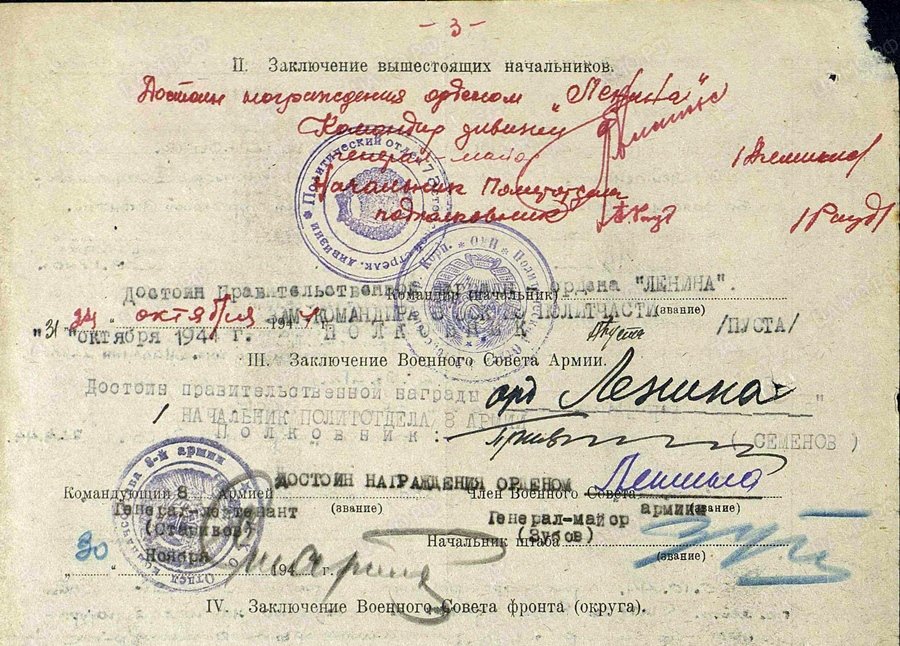 - 3 -
II. Заключение вышестоящих начальников.
Достоин награждения орденом "Ленина"
Командир дивизии
генерал-майор
Начальник Политотдела
подполковник
Политический отдел
стрелк. дивизии
Достоин Правительственной ордена "ЛЕНИНА".
Командир (начальник)
(звание)
ЗАМ КОМАНДИРА ПО ПОЛИТЧАСТИ
"24" октября 194
"31" октября 1944 г. /ПУСТА/
III. Заключение Военного Совета Армии.
Достоин правительственной награды орд Ленина
НАЧАЛЬНИК ПОЛИТОТДЕЛА 8 АРМИИ
Полковник: (СЕМЕНОВ)
8-й армии
ДОСТОИН НАГРАЖДЕНИЯ ОРДЕНОМ Ленина
Командующий 8 Армией Член Военного Совета армии
(звание) (звание)
Генерал-лейтенант Генерал-майор
(Стариков) (Зубов)
Начальник штаба
(звание)
"30" Ноября 194 г.
IV. Заключение Военного Совета фронта (округа).